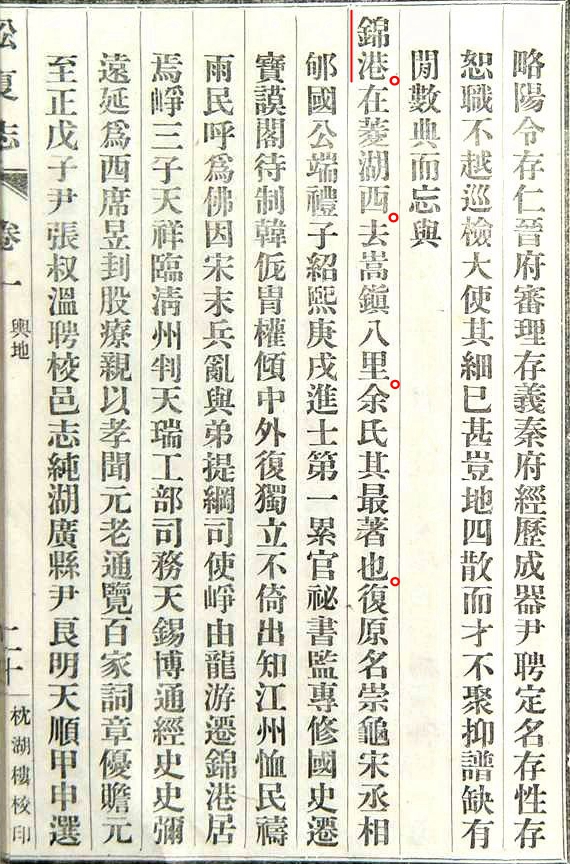 略陽令存仁晉府審理存義秦府經歷成器尹聘定名存性存
恕職不越巡檢大使其細巳甚豈地四散而才不聚抑譜缺有
閒數典而忘與
錦港在菱湖西去嵩鎮八里余氏其最著也復原名崇龜宋丞相
邺國公端禮子紹熙庚戌進士第一累官祕書監專修國史遷
寶謨閣待制韓侂冑權傾中外復獨立不倚出知江州恤民禱
雨民呼爲佛因宋末兵亂與弟提綱司使崢由龍游遷錦港居
焉崢三子天祥臨淸州判天瑞工部司務天錫博通經史史彌
遠延爲西席昱刲股療親以孝聞元老通覽百家詞章優贍元
至正戊子尹張叔溫聘校邑志純湖廣縣尹良明天順甲申選
志
卷一
輿地
二十
枕湖樓校印